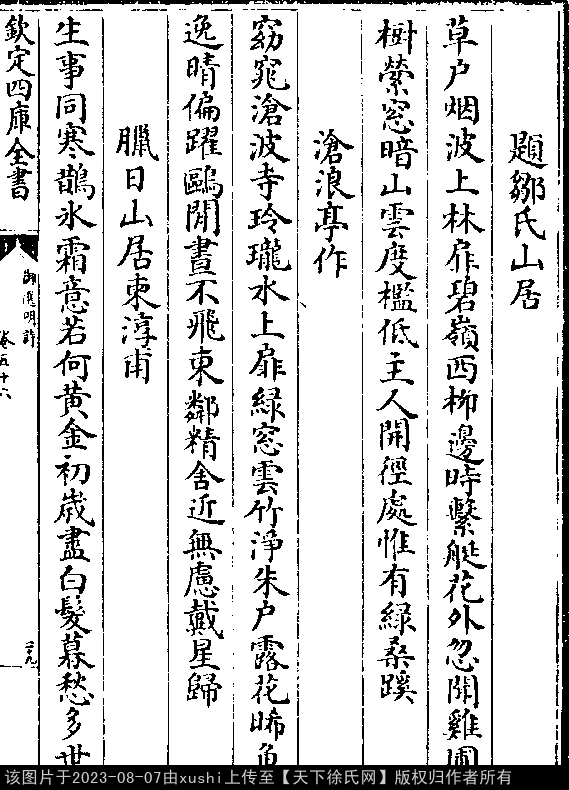 題鄒氏山居
草户烟波上林扉碧嶺西柳邊時繫艇花外忽聞雞圃
樹縈窓暗山雲度檻低主人開徑處惟有緑桑蹊
滄浪亭作
窈窕滄波寺玲瓏水上扉緑窓雲竹淨朱户露花晞魚
逸晴偏躍鷗閒晝不飛東鄰精舍近無慮戴星歸
臘日山居柬淳甫
生事同寒鵲氷霜意若何黄金初歳盡白髮暮愁多世
欽定四庫全書
御選明詩
卷五十六
该图片于2023-08-07由xushi上传至【天下徐氏网】版权归作者所有